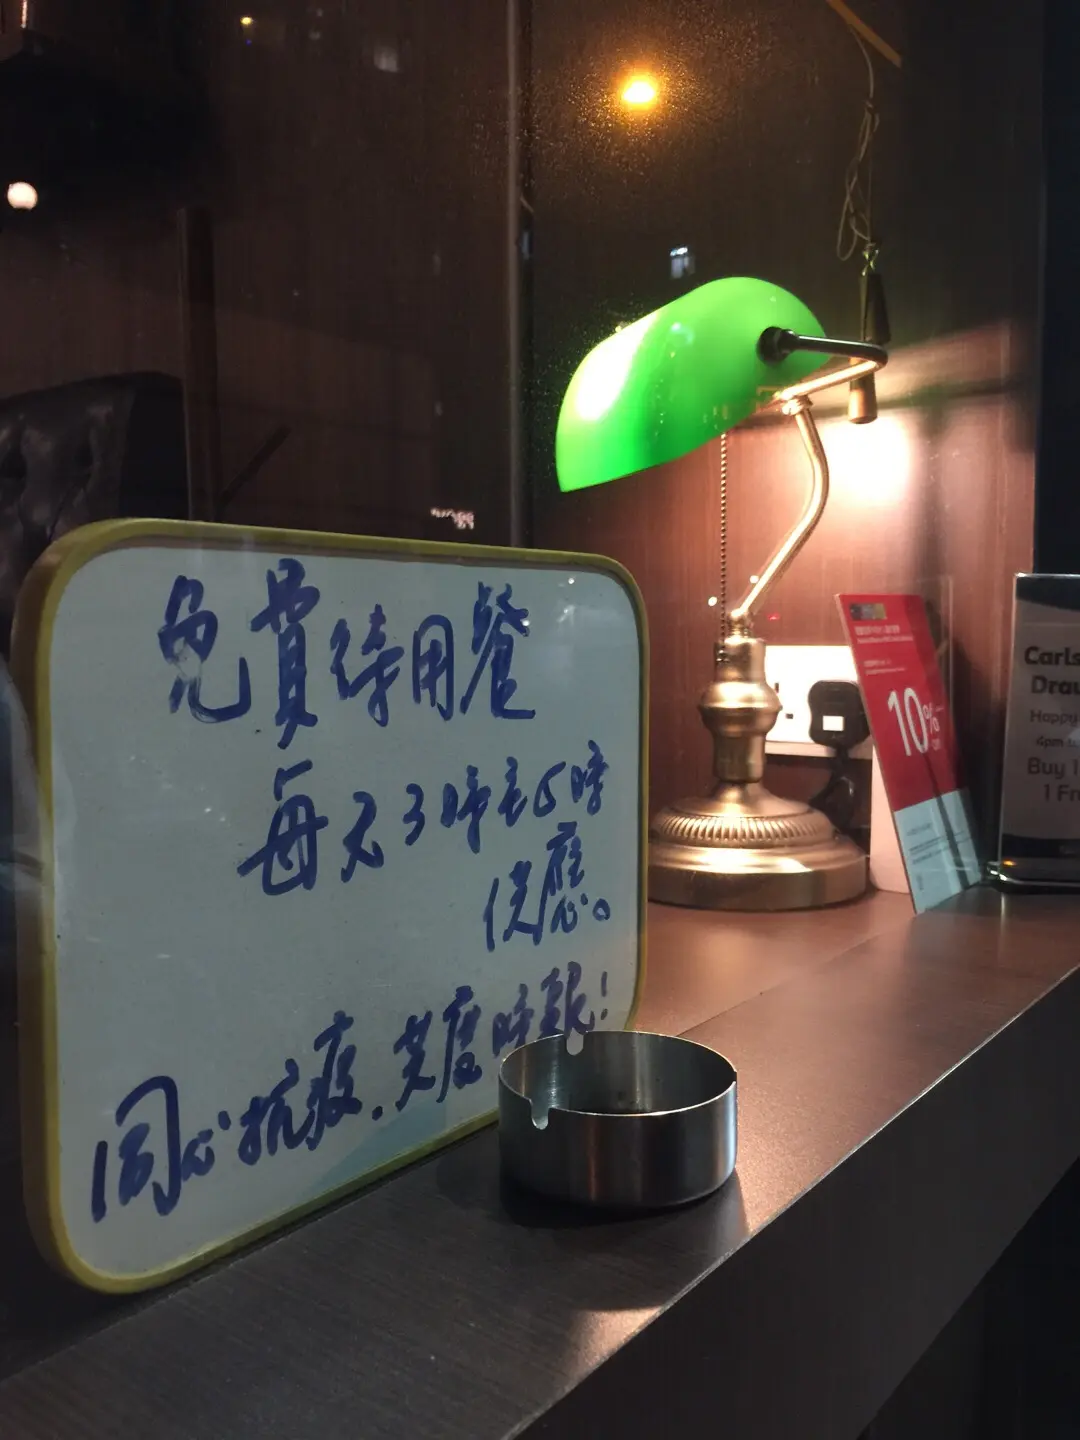 免費待用餐
每天3時至5時
供應。
同心抗疫．共度時艱！
10%
Carls
Drau
Happy
4pm
Buy 1
1 Fr